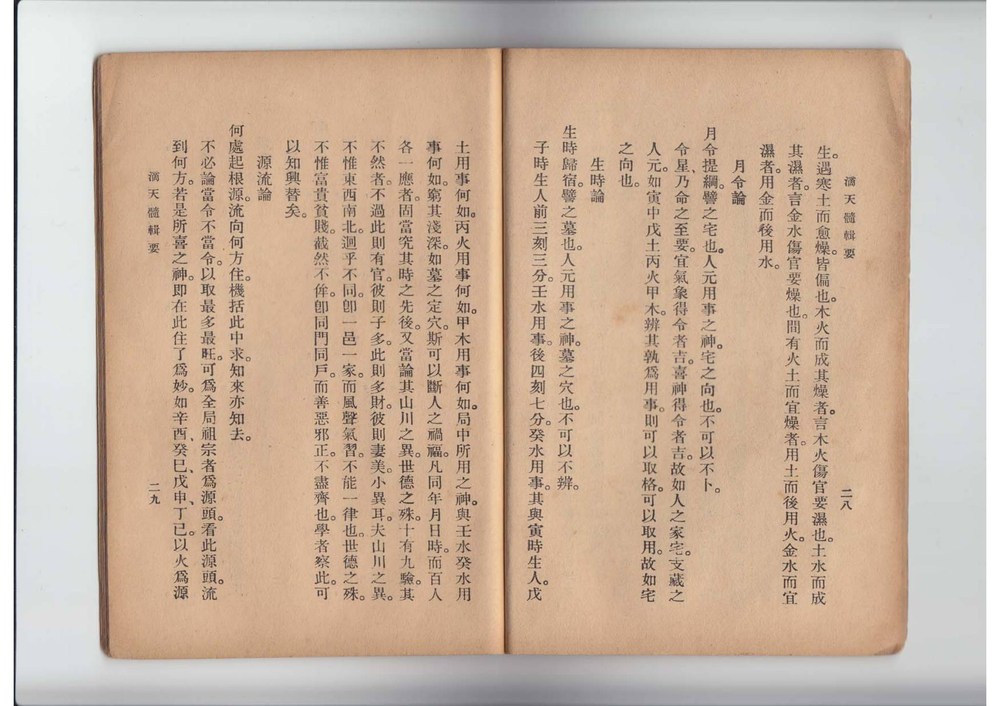 滴天髓輯要
二八
生。遇寒土而愈燥。皆偏也。木火而成其燥者。言木火傷官要濕也。土水而成
其濕者。言金水傷官要燥也。間有火土而宜燥者。用土而後用火。金水而宜
濕者。用金而後用水。
月令論
月令提綱。譬之宅也。人元用事之神。宅之向也。不可以不卜。
令星、乃命之至要。宜氣象得令者吉。喜神得令者吉。故如人之家宅。支藏之
人元。如寅中戊土丙火甲木。辨其孰爲用事。則可以取格。可以取用。故如宅
之向也。
生時論
生時歸宿。譬之墓也。人元用事之神。墓之穴也。不可以不辨。
子時生人。前三刻三分。壬水用事。後四刻七分。癸水用事。其與寅時生人。戊
土用事何如。丙火用事何如。甲木用事何如。局中所用之神。與壬水癸水用
事何如。窮其淺深。如墓之定穴。斯可以斷人之禍福。凡同年月日時。而百人
各一應者。固當究其時之先後。又當論其山川之異。世德之殊。十有九驗。其
不然者。不過此則有官。彼則子多。此則多財。彼則妻美。小異耳。夫山川之異。
不惟東西南北。迥乎不同。卽一邑一家。而風聲氣習。不能一律也。世德之殊。
不惟富貴貧賤。截然不侔。卽同門同戶。而善惡邪正。不盡齊也。學者察此。可
以知興替矣。
源流論
何處起根源。流向何方住。機括此中求。知來亦知去。
不必論當令不當令。以取最多最旺。可爲全局祖宗者爲源頭。看此源頭。流
到何方。若是所喜之神。卽在此住了爲妙。如辛酉、癸巳、戊申、丁巳。以火爲源
滴天髓輯要
二九